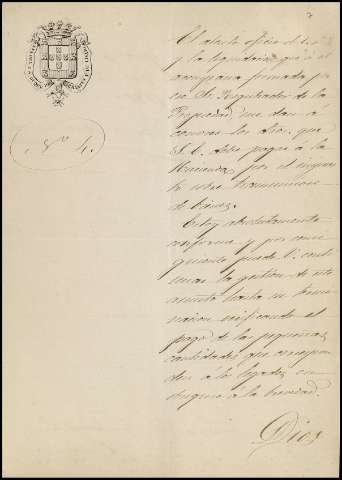 7
Nº 4.
El atento oficio de
y la liquidacion que á él
acompaña firmada por
el Sr. Registrador de la
Propiedad, me dan á
conocer los dros. que
S. E. debe pagar á la
Hacienda, por el impues
to sobre transmisiones
de bienes.
Estoy absolutamente
conforme y por consi
guiente puede V. conti
nuar la gestion de este
asunto hasta su termi
nacion verificando el
pago de las pequeñas
cantidades que correspon
den á los legados
á la brevedad.
Dios